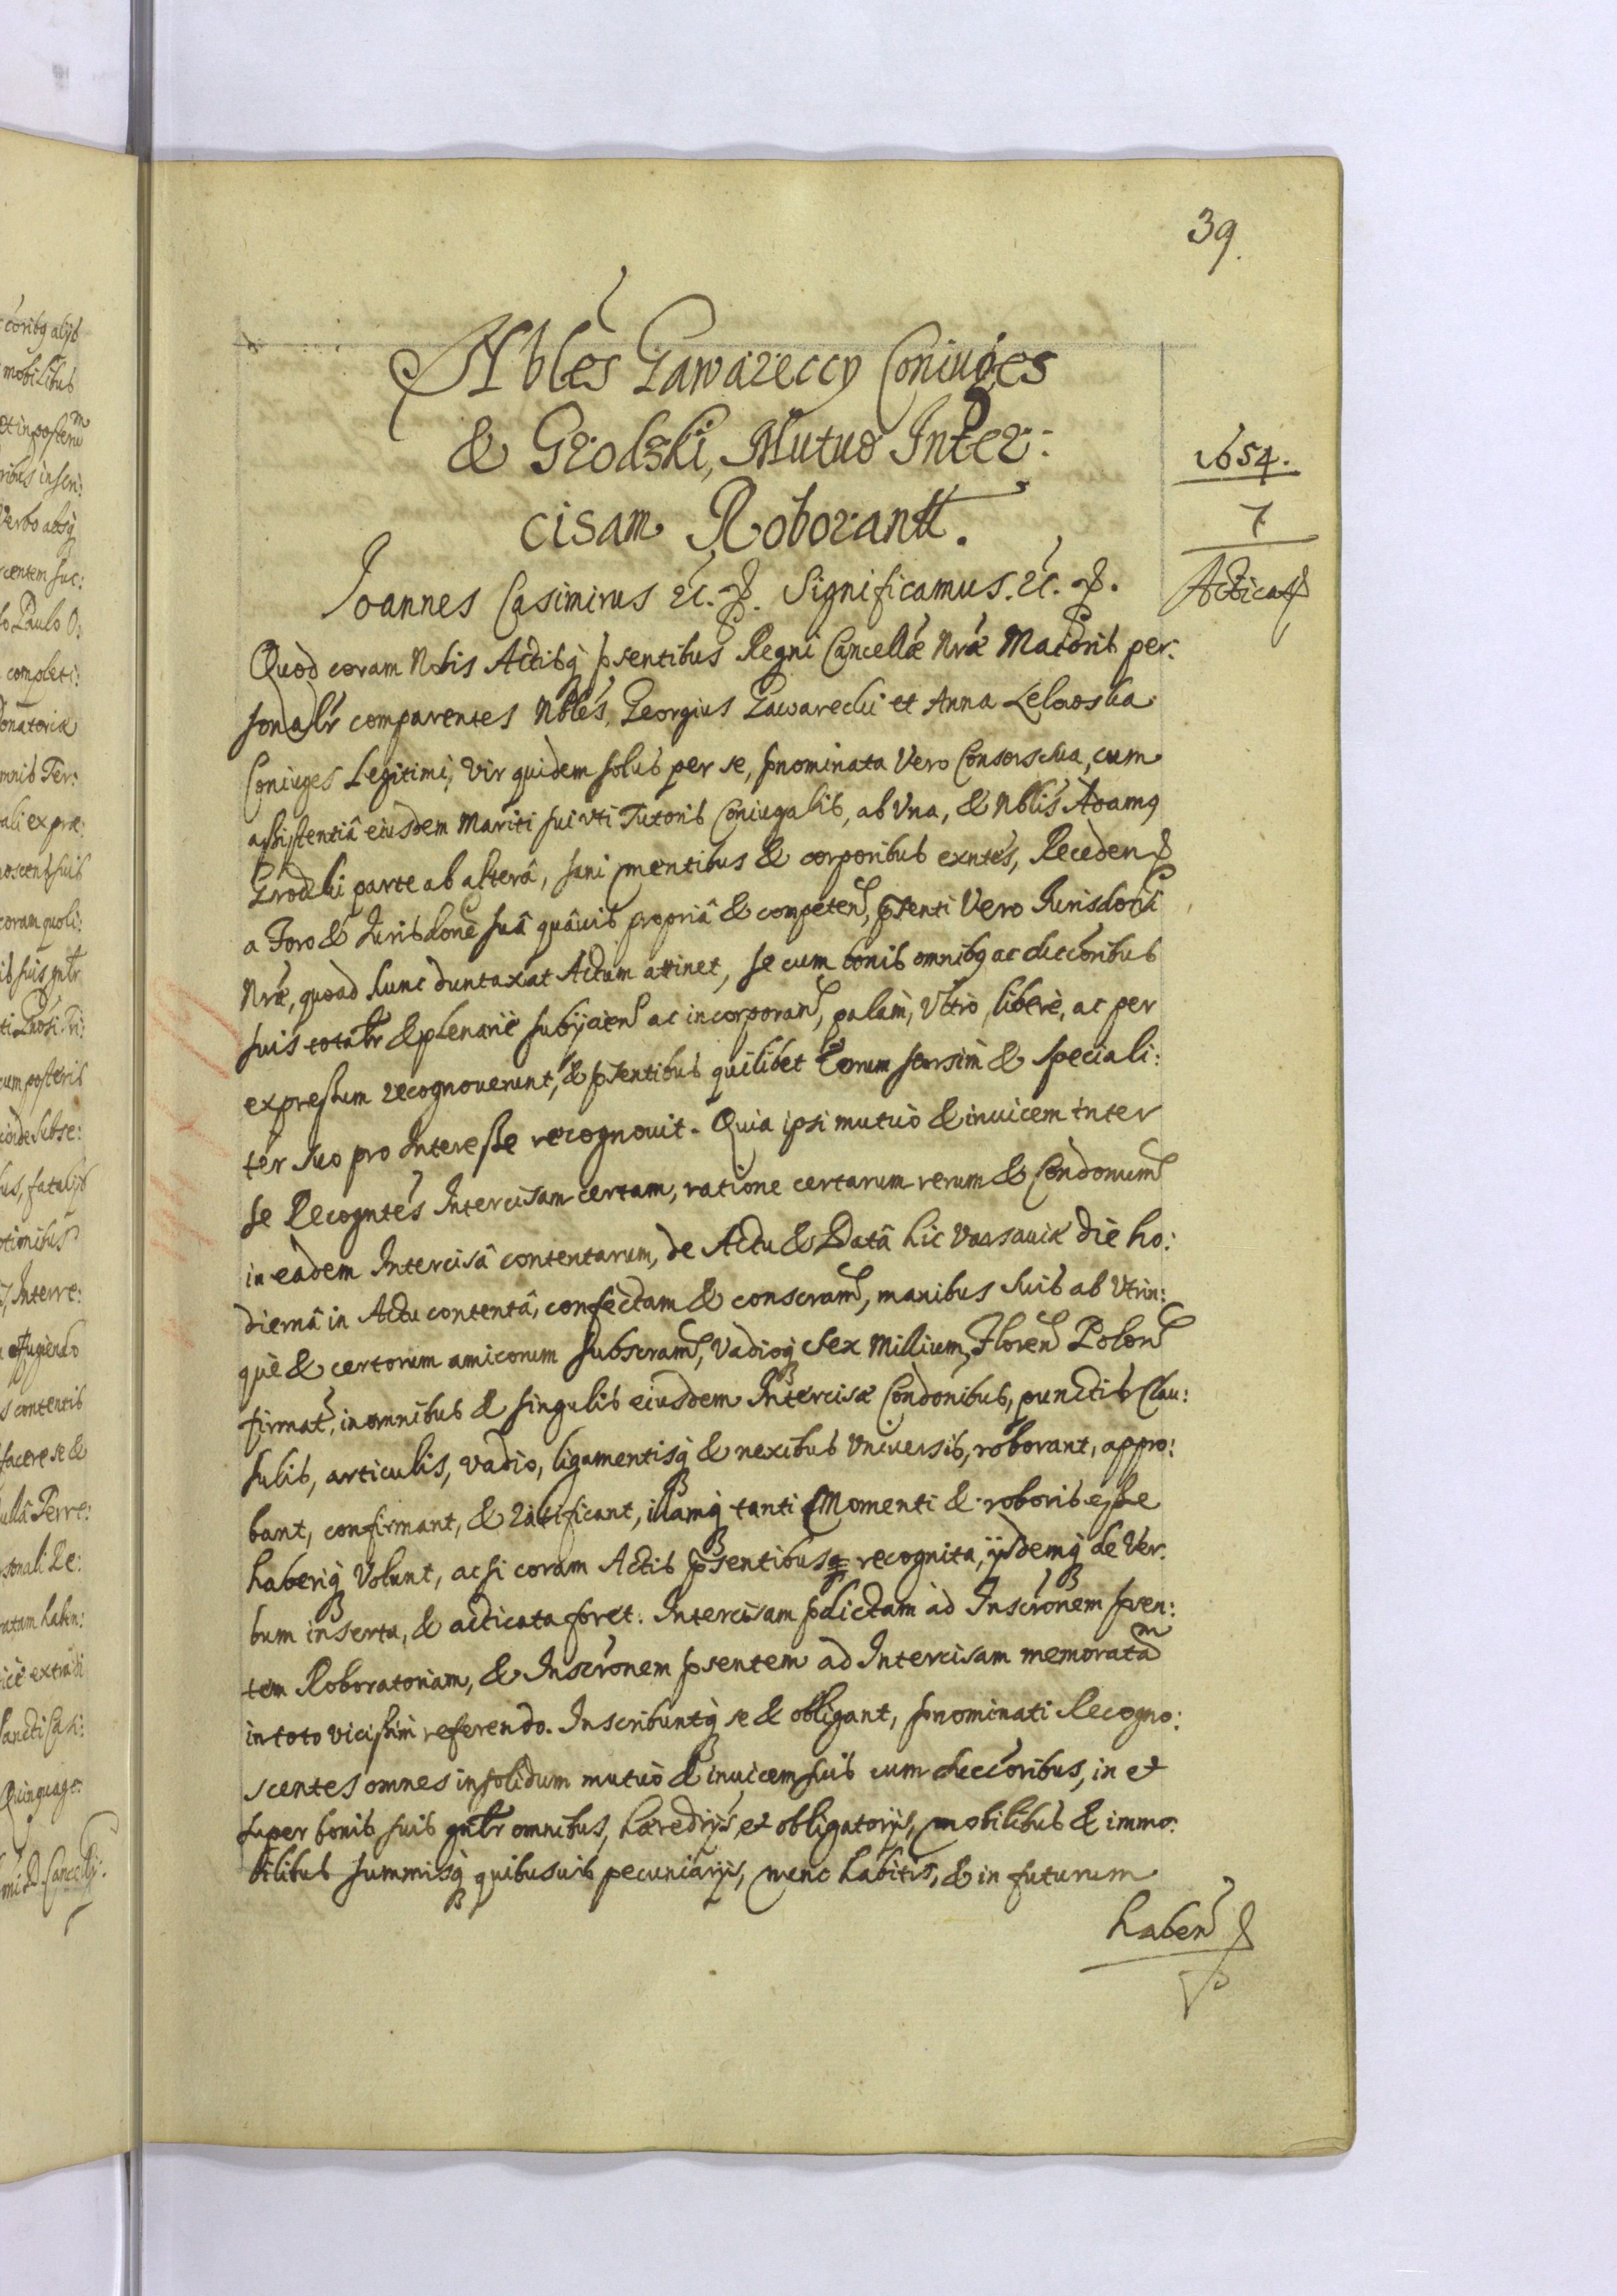 39.
Nbles Gawareccy Coniuges
& Grodzki, Mutuo Inter:
cisam Roborantt.
1654.
7
Acticat
Ioannes Casimirus &c. Significamus. &c.
Quod coram Nobis Actisq̃ pſentibus Regni Cancellæ Nræ Maioris per:
sonalr comparentes Nbles, Georgius Gawarecki et Anna Lelowska
Coniuges Legitimi, Vir quidem solus per se, pnominata Vero Consors sua, cum
assistentiâ eiusdem Mariti sui vti Tutoris Coniugalis, ab Vna, & Nblis Adamq
Grodzki parte ab alterâ, sani mentibus & corporibus exntes, Receden
a Foro & Iurisdone suâ quâuis propriâ & competen, pſenti Vero Iurisdoni
Nræ, quoad hunc duntaxat Actum attinet, se cum bonis omnibq ac succoribus
suis totalr & plenariè subijcien ac incorporan, palàm, Vltrò, liberè, ac per
expressum recognouerunt, & pſentibus quilibet Eorum seorsim & speciali:
ter suo pro Interesse recognouit. Quia ipsi mutuò & inuicem inter
se Recogntes Intercisam certam, ratione certarum rerum & Condonum
in eadem Intercisâ contentarum, de Actu & Datâ hic Varsauiæ die ho:
diernâ in Actu contentâ, confectam & conscram, manibus suis ab Vtrin:
què & certorum amicorum subscram, Vadioq̃ Sex Millium, Floren Polon
firmat, in omnibus & singulis eiusdem Intercisæ Condonibus, punctis Clau:
sulis, articulis, vadio, ligamentisq̃ & nexibus Vniuersis, roborant, appro:
bant, confirmant, & ratificant, illamq̃ tanti Momenti & roboris esse
haberiq̃ Volunt, ac si coram Actis pſentibusq̃ recognita, ijsdemq̃ de Ver:
bum inserta, & acticata foret. Intercisam pdictam ad Inscronem psen:
tem Roboratoriam, & Inscronem pſentem ad Intercisam memoratam
in toto vicissim referendo. Inscribuntq̃ se & obligant, pnominati Recogno:
scentes omnes in solidum mutuò & inuicem suis cum succoribus, in et
super bonis suis gnlr omnibus, hæredrijs et obligatorijs, mobilibus & immo:
bilibus summisq̃ quibusuis pecuniarijs, nunc habitis, & in futurum
haben